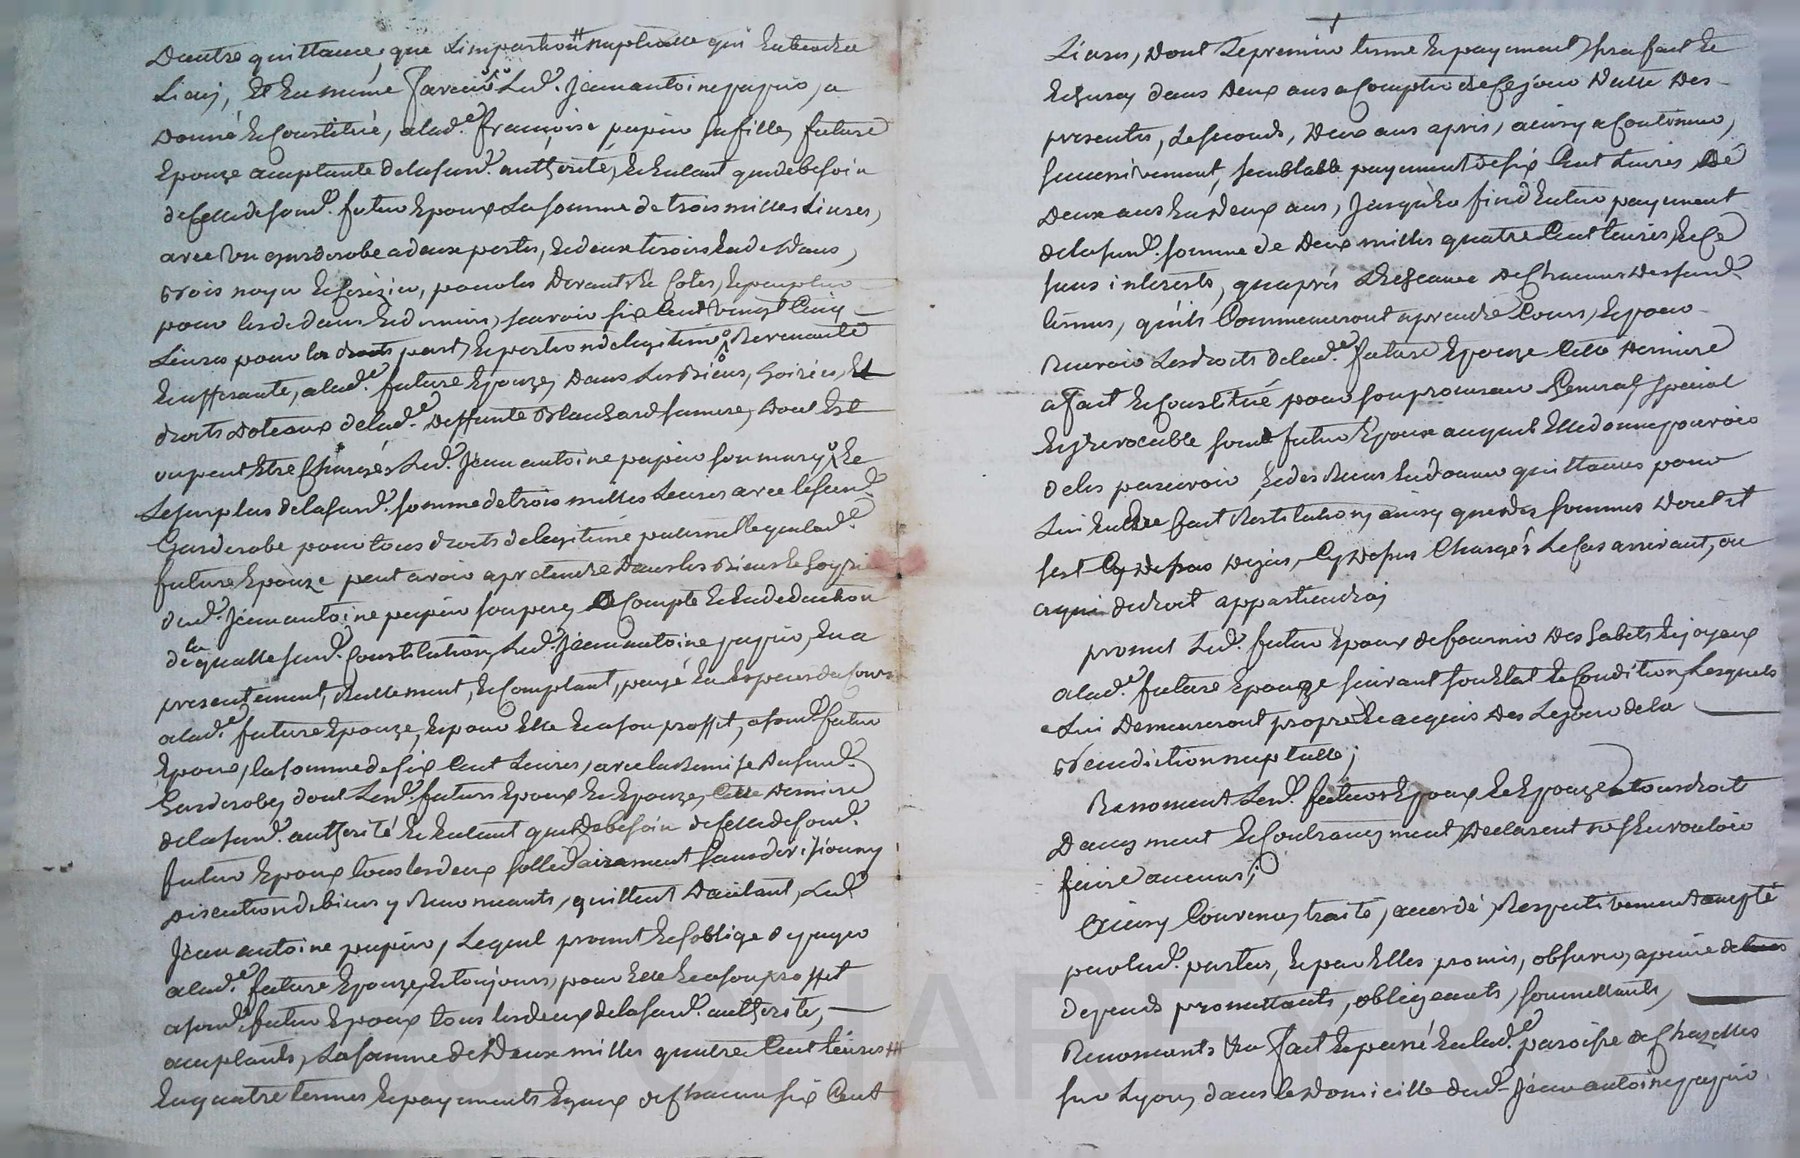 Dautre quittance, que L'impartion nuptialle qui tiendra
Lieu, Et En même faveur Led.t Jean antoine papin, a
Donné Et Constitué, a lad.e françoise papin sa fille, future
Epouze acceptante de la susd.e authorité, Et Entant que de besoin
de celle de sond.t futur Epoux La somme de trois milles Livres,
avec un garderobe a deux portes, Et deux tiroirs En dedans,
Bois noyer Et Cerizier, pour les Devants Et Cotes, Et peuplier
pour les dedans Et dernier, savoir six Cent Vingt Cinq
Livres pour les droits part, Et portion de legitime Revenante
Et afferante, a lad.e future Epouze, Dans Les Biens, hoirie, Et
droits Dotaux de lad.e Deffunte Blanchard sa mere, Dont Est
ou peut Etre Chargés Led.t Jean antoine papin son mary, Et
Le surplus de la susd.e somme de trois milles Livres avec le susd.t
Garderobe pour tous droits de legitime paternelle que lad.e
future Epouze peut avoir a pretendre Dans les Biens Et hoyrie
dud.t Jean antoine papin son pere, a Compte Et En deduction
de la quelle susd.e Constitution, Led.t Jean antoine papin, En a
presentement, Reellement, Et Comptant, payé En Especes du Cours
a lad.e future Epouze, Et pour Elle Et a son proffit, a sond.t futur
Epoux, la somme de six Cent Livres, avec la Remise du susd.t
Garderobe, dont Lesd.ts futurs Epoux Et Epouze, Cette Derniere
de la susd.e authorité Et Entant que De besoin de celle de sond.t
futur Epoux tous les deux sollidairement sans division ny
Discution de biens y Renonceants, quittent D'autant, Led.t
Jean antoine papin, Lequel promet Et s'oblige de payer
a lad.e future Epouze, Et toujours, pour Elle Et a son proffit
a sond.t futur Epoux tous les deux de la susd.e authorité,
acceptants, La somme de Deux milles quatre Cent Livres
En quatre termes Et payements Egaux de Chacun six Cent
Livres, Dont Le premier terme Et payement sera fait Et
Echeray dans Deux ans a Compter de Ce jour Datte Des
presentes, Le second, Deux ans apres, ainsy a Continuer,
successivement, semblable payement de six Cent Livres De
Deux ans En Deux ans, Jusqu'a fin d'Entier payement
de la susd.e somme de Deux milles quatre Cent Livres, Et Ce
sans interets, qu'aprés L'Echeance De Chacuns Des susd.ts
termes, qu'ils Commenceront a prendre Cours, Et pour
Recevoir Les droits de lad.e future Epouze Cette Derniere
a Fait Et Constitué pour son procureur General, special
Et Irrevocable sond.t futur Epoux auquel Elle donne pouvoir
de les percevoir, Et des Reçus En donner quittances pour
Lui En Etre fait Restitution, ainsy que des sommes Dont il
s'est Cy Dessus Dejas, Cy Dessus Chargés Le Cas arrivant, ou
a qui de droit appartiendra,
promet Led.t futur Epoux de fournir Des habits Et joyaux
a lad.e future Epouze suivant son Etat Et Condition, Lesquels
Lui Demeureront propre Et acquis Des Le jour de la
Benediction nuptialle;
Renoncent Lesd.ts futurs Epoux Et Epouze a tous droit
D'augment Et Contraugment, Declarent ne s'En vouloir
faire aucuns;
Ainsy Convenu, traité, accordé, Respectivement accepté
par lesd.s parties, Et par Elles promis, observer, a peine de tous
depends promettants, obligeants, soumettants,
Renonceants &c.a Fait Et passé En lad.e paroisse de Chazelles
sur Lyon, dans le Domicille dud.t Jean antoine papin